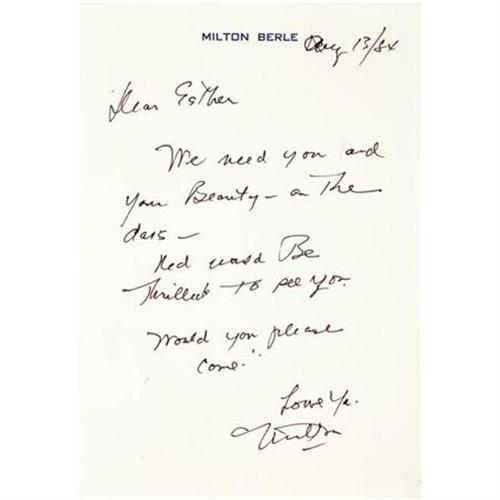 MILTON BERLE Aug 13/84
Dear Esther
We need you and
your Beauty - on The
dais -
Red would Be
Thrilled to see you.
Would you please
come.
Love Ya.
Milton